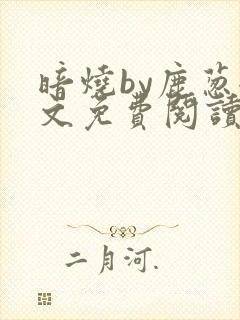 暗燒by鹿葱
文免費閱讀
二月河.